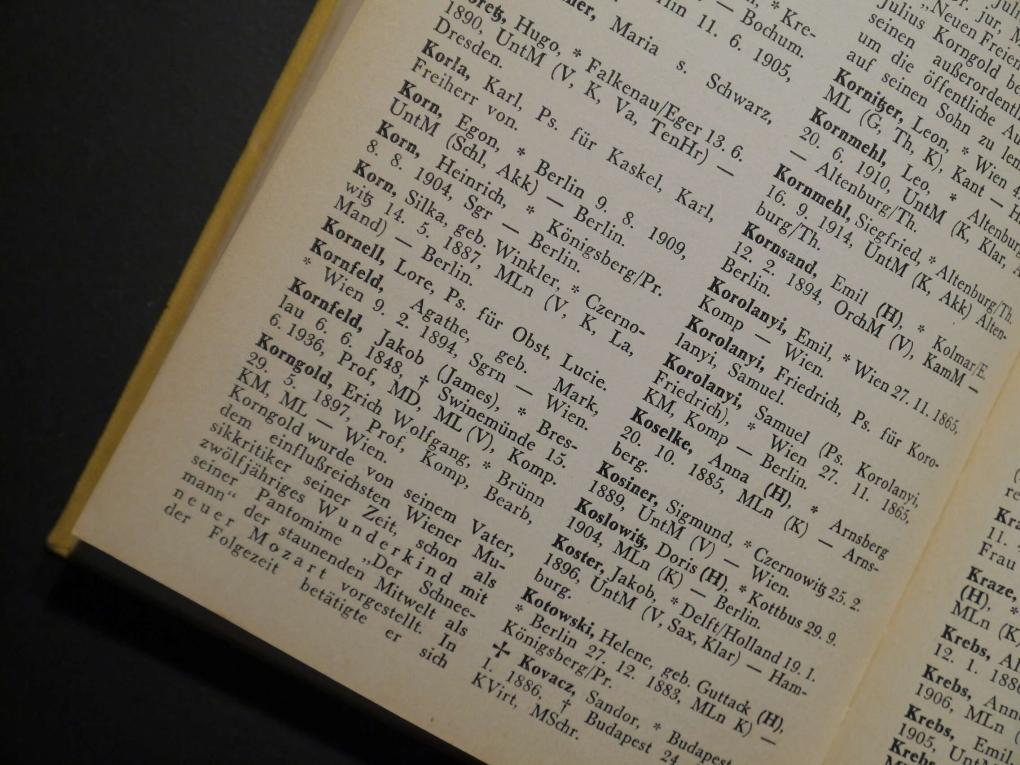 Kre-
— Bochum.
11. 6. 1905,
Maria s. Schwarz,
Hugo, * Falkenau/Eger 13. 6.
1890, UntM (V, K, Va, TenHr) —
Dresden.
Korla, Karl, Ps. für Kaskel, Karl,
Freiherr von.
Korn, Egon, * Berlin 9. 8. 1909,
UntM (Schl, Akk) — Berlin.
Korn, Heinrich, * Königsberg/Pr.
8. 8. 1904, Sgr — Berlin.
Korn, Silka, geb. Winkler, * Czerno-
witz 14. 5. 1887, MLn (V, K, La,
Mand) — Berlin.
Kornell, Lore, Ps. für Obst, Lucie.
Kornfeld, Agathe, geb. Mark,
* Wien 9. 2. 1894, Sgrn — Wien.
Kornfeld, Jakob (James), * Bres-
lau 6. 6. 1848, † Swinemünde 15.
6. 1936, Prof, MD, ML (V), Komp.
Korngold, Erich Wolfgang, * Brünn
29. 5. 1897, Prof, Komp, Bearb,
KM, ML — Wien.
Korngold wurde von seinem Vater,
dem einflußreichsten Wiener Mu-
sikkritiker seiner Zeit, schon als
zwölfjähriges Wunderkind mit
seiner Pantomime „Der Schnee-
mann“ der staunenden Mitwelt als
neuer Mozart vorgestellt. In
der Folgezeit betätigte er sich
„Neuen Freien
Julius Korngold be
seinen außerordentl
um die öffentliche Au
auf seinen Sohn zu len
Kornitzer, Leon, * Wien 4
ML (G, Th, K), Kant — H
Kornmehl, Leo, * Altenburg
20. 6. 1910, UntM (K, Klar, A
— Altenburg/Th.
Kornmehl, Siegfried, * Altenburg/Th.
16. 9. 1914, UntM (K, Akk) Alten-
burg/Th.
Kornsand, Emil (H), * Kolmar/E.
12. 2. 1894, OrchM (V), KamM —
Berlin.
Korolanyi, Emil, * Wien 27. 11. 1865,
Komp — Wien.
Korolanyi, Friedrich, Ps. für Koro-
lanyi, Samuel.
Korolanyi, Samuel (Ps. Korolanyi,
Friedrich), * Wien 27. 11. 1865,
KM, Komp — Berlin.
Koselke, Anna (H), * Arnsberg
20. 10. 1885, MLn (K) — Arns-
berg.
Kosiner, Sigmund, * Czernowitz 25. 2.
1889, UntM (V) — Wien.
Koslowitz, Doris (H), * Kottbus 29. 9.
1904, MLn (K) — Berlin.
Koster, Jakob, * Delft/Holland 19. 1.
1896, UntM (V, Sax, Klar) — Ham-
burg.
Kotowski, Helene, geb. Guttack (H),
* Berlin 27. 12. 1883, MLn K) —
Königsberg/Pr.
✢ Kovacz, Sandor, * Budapest
1. 1886, † Budapest 24
KVirt, MSchr.
11. 4.
Frau
Kraze,
(H), *
MLn (K)
Krebs, Al
12. 1. 1886
Krebs, Ann
1906, MLn (
Krebs, Emil,
1905, UntM
Krebs